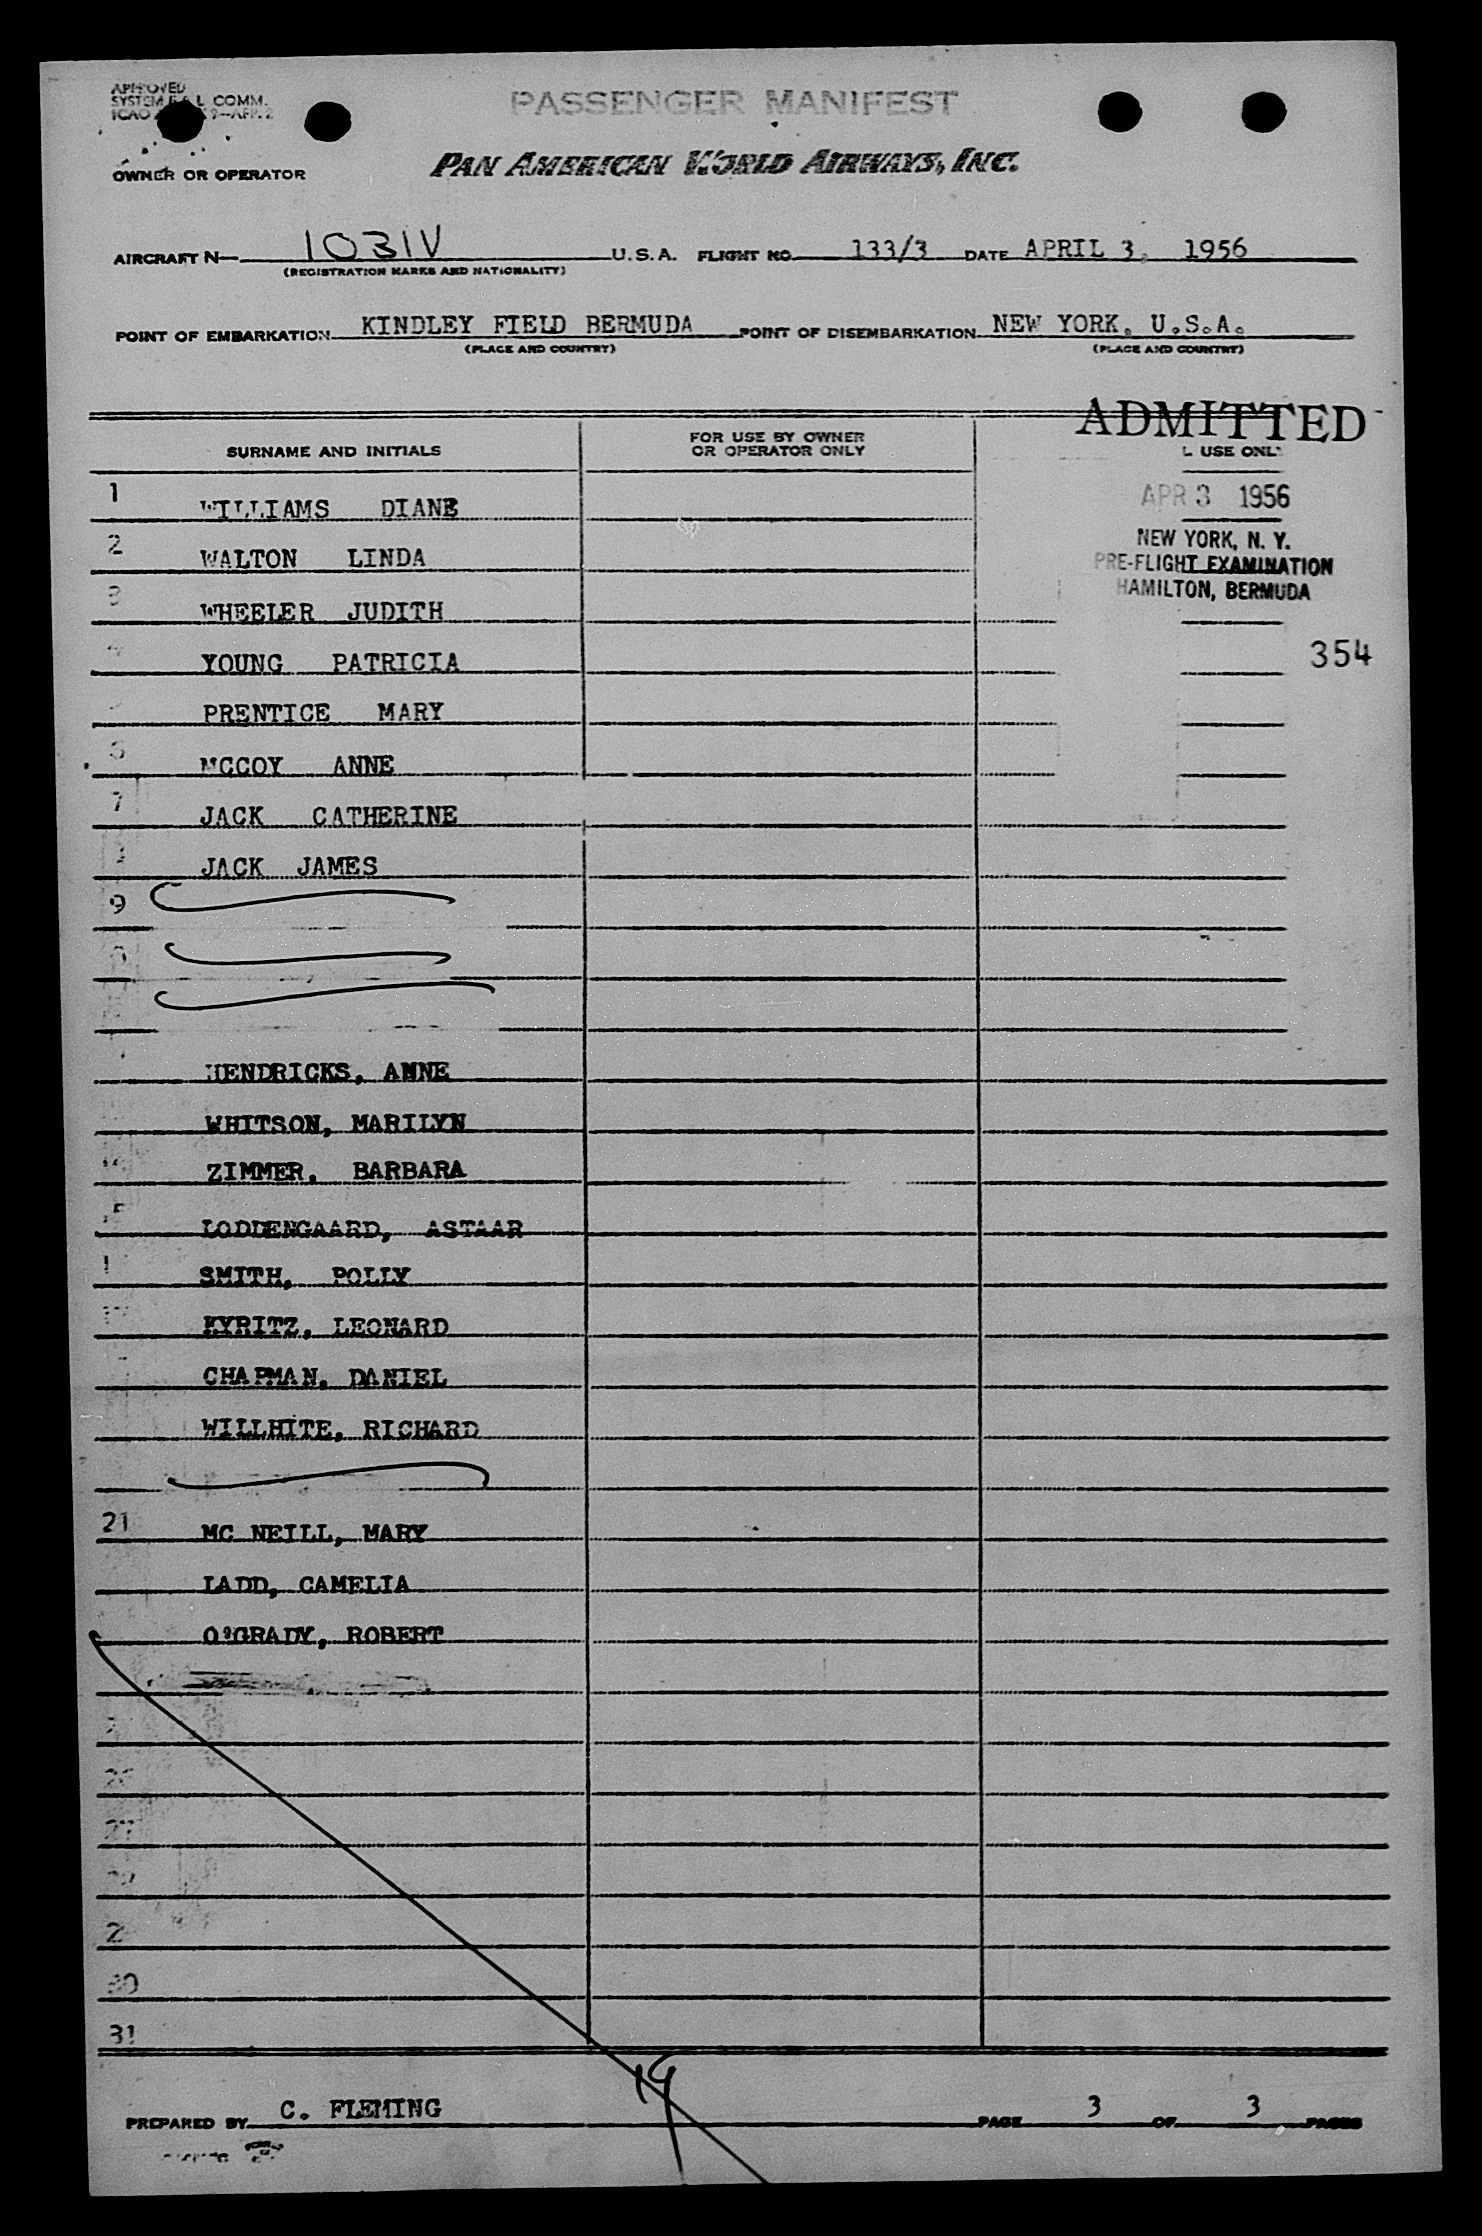 APPROVED
SYSTEM COMM.
ICAO
PASSENGER MANIFEST
OWNER OR OPERATOR PAN AMERICAN WORLD AIRWAYS, INC.
AIRCRAFT N— 1031V U.S.A. FLIGHT NO. 133/3 DATE APRIL 3, 1956
(REGISTRATION MARKS AND NATIONALITY)
POINT OF EMBARKATION KINDLEY FIELD BERMUDA POINT OF DISEMBARKATION NEW YORK, U.S.A.
(PLACE AND COUNTRY) (PLACE AND COUNTRY)
ADMITTED
SURNAME AND INITIALS FOR USE BY OWNER OR OPERATOR ONLY L USE ONL
APR 3 1956
NEW YORK, N. Y.
PRE-FLIGHT EXAMINATION
HAMILTON, BERMUDA
354
1 WILLIAMS DIANE
2 WALTON LINDA
3 WHEELER JUDITH
4 YOUNG PATRICIA
PRENTICE MARY
6 MCCOY ANNE
7 JACK CATHERINE
JACK JAMES
9
HENDRICKS, ANNE
WHITSON, MARILYN
ZIMMER, BARBARA
LODDENGAARD, ASTAAR
SMITH, POLLY
KYRITZ, LEONARD
CHAPMAN, DANIEL
WILLHITE, RICHARD
21 MC NEILL, MARY
LADD, CAMELIA
O'GRADY, ROBERT
26
27
30
31
19
PREPARED BY C. FLEMING PAGE 3 OF 3 PAGES